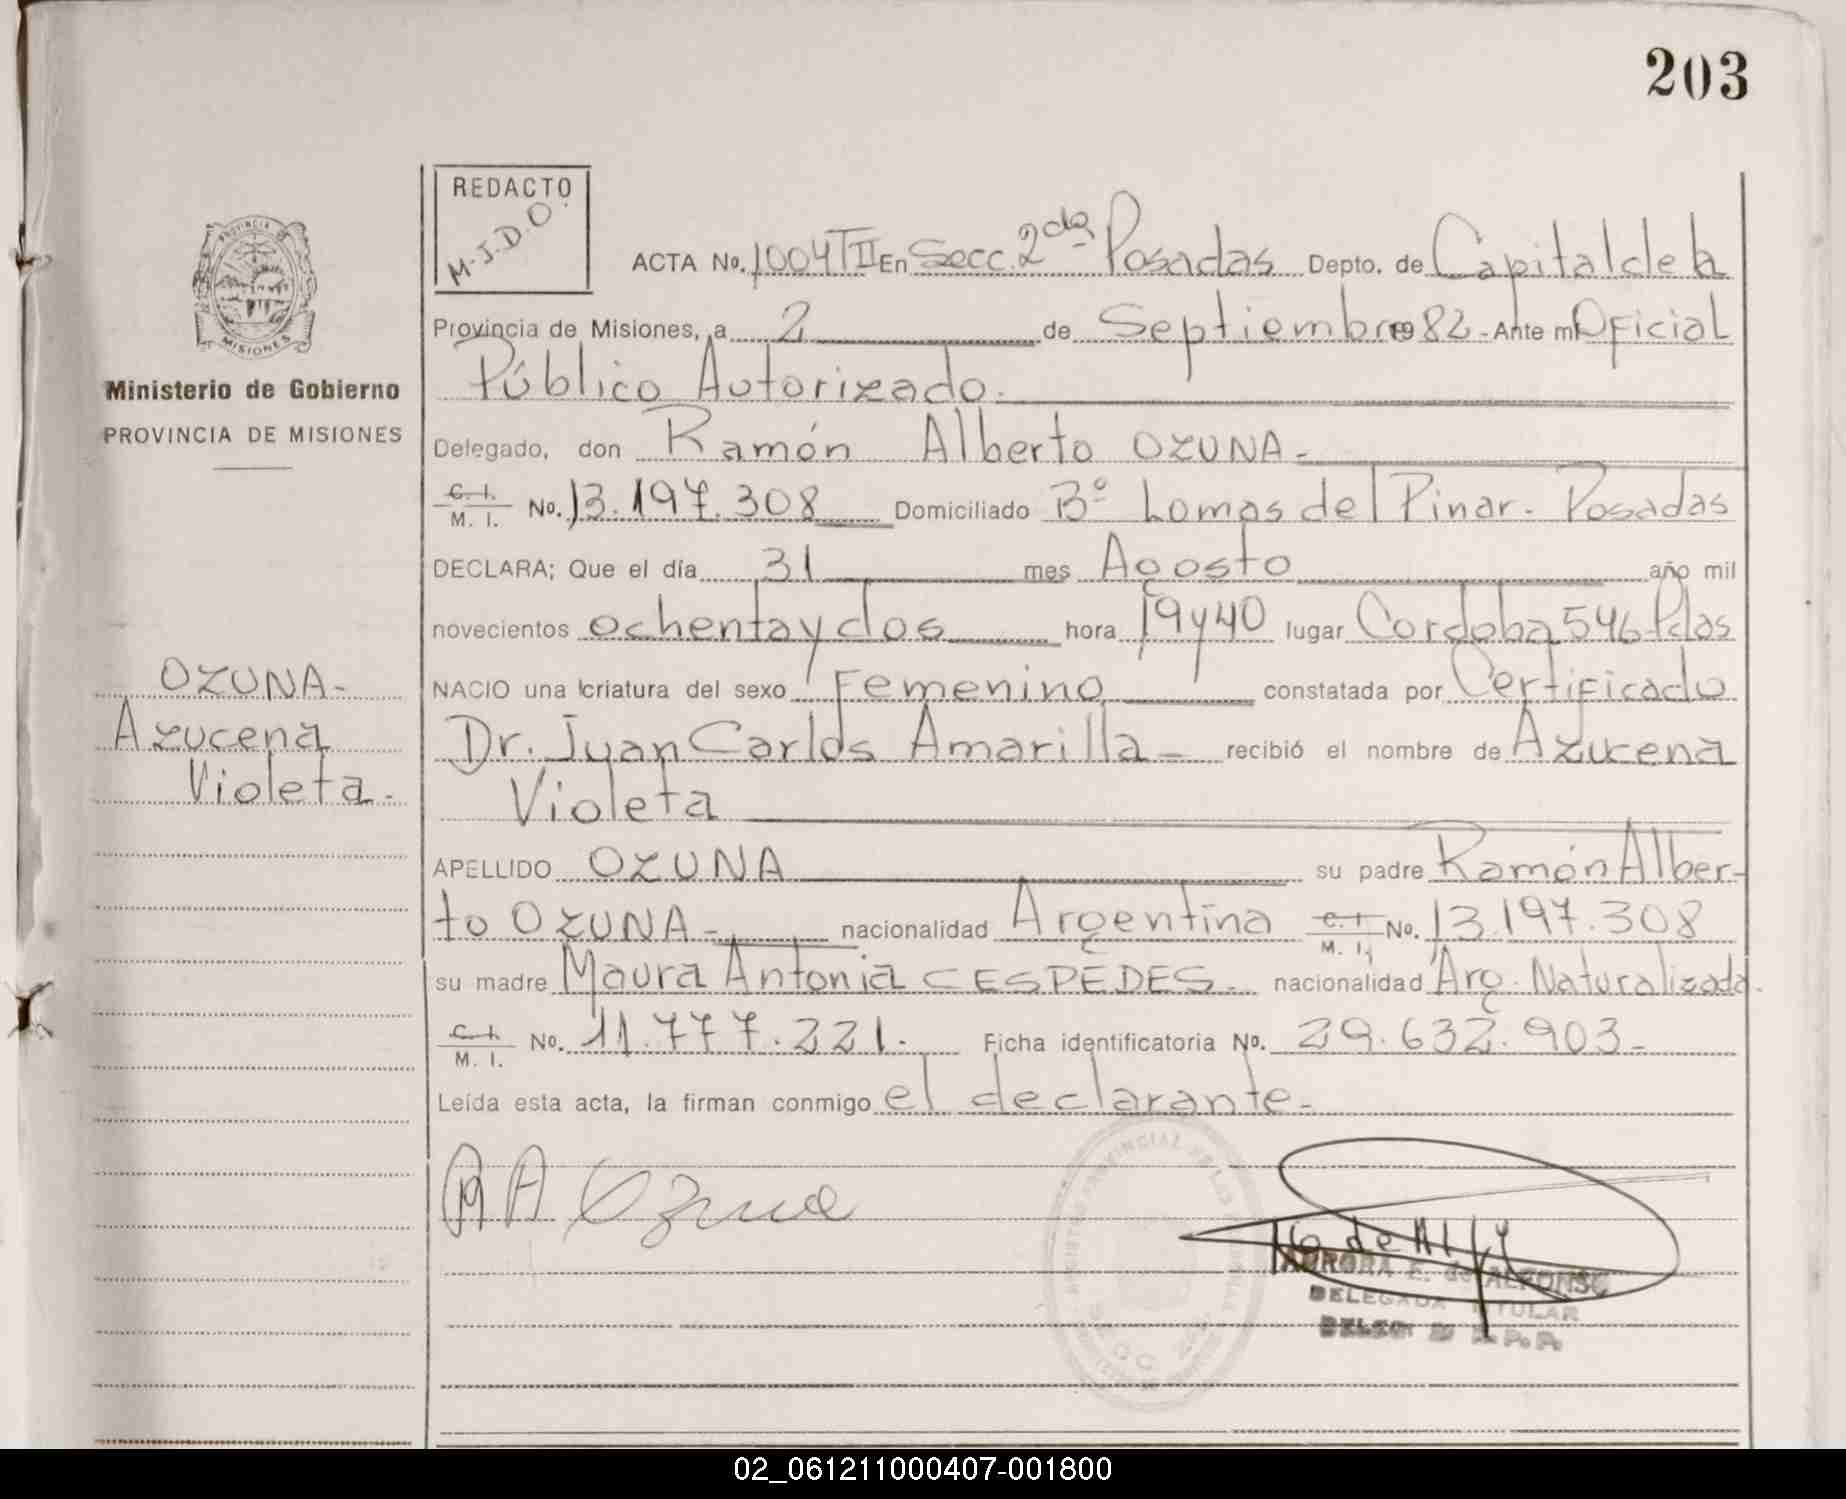 203
REDACTO
M.J.D.O.
PROVINCIA
MISIONES
Ministerio de Gobierno
PROVINCIA DE MISIONES
ACTA No. 1004TII En Secc. 2da Posadas Depto. de Capital de la
Provincia de Misiones, a 2 de Septiembre 1982 - Ante mi Oficial
Público Autorizado.
Delegado, don Ramón Alberto OZUNA -
C. I. M. I. No. 13.197.308 Domiciliado Bº Lomas del Pinar. Posadas
DECLARA; Que el día 31 mes Agosto año mil
novecientos ochenta y dos hora 19 y 40 lugar Cordoba 546 Pdas
NACIO una criatura del sexo Femenino constatada por Certificado
Dr. Juan Carlos Amarilla - recibió el nombre de Azucena
Violeta
APELLIDO OZUNA su padre Ramón Alber-
to OZUNA - nacionalidad Argentina C. I. M. I. No. 13.197.308
su madre Maura Antonia CESPEDES. nacionalidad Arg. Naturalizada.
C. I. M. I. No. 11.777.221. Ficha identificatoria No. 29.632.903-
Leída esta acta, la firman conmigo el declarante-
OZUNA-
Azucena
Violeta.-
RA Ozuna
AURORA E. de ALFONSO
DELEGADA TITULAR
02_061211000407-001800